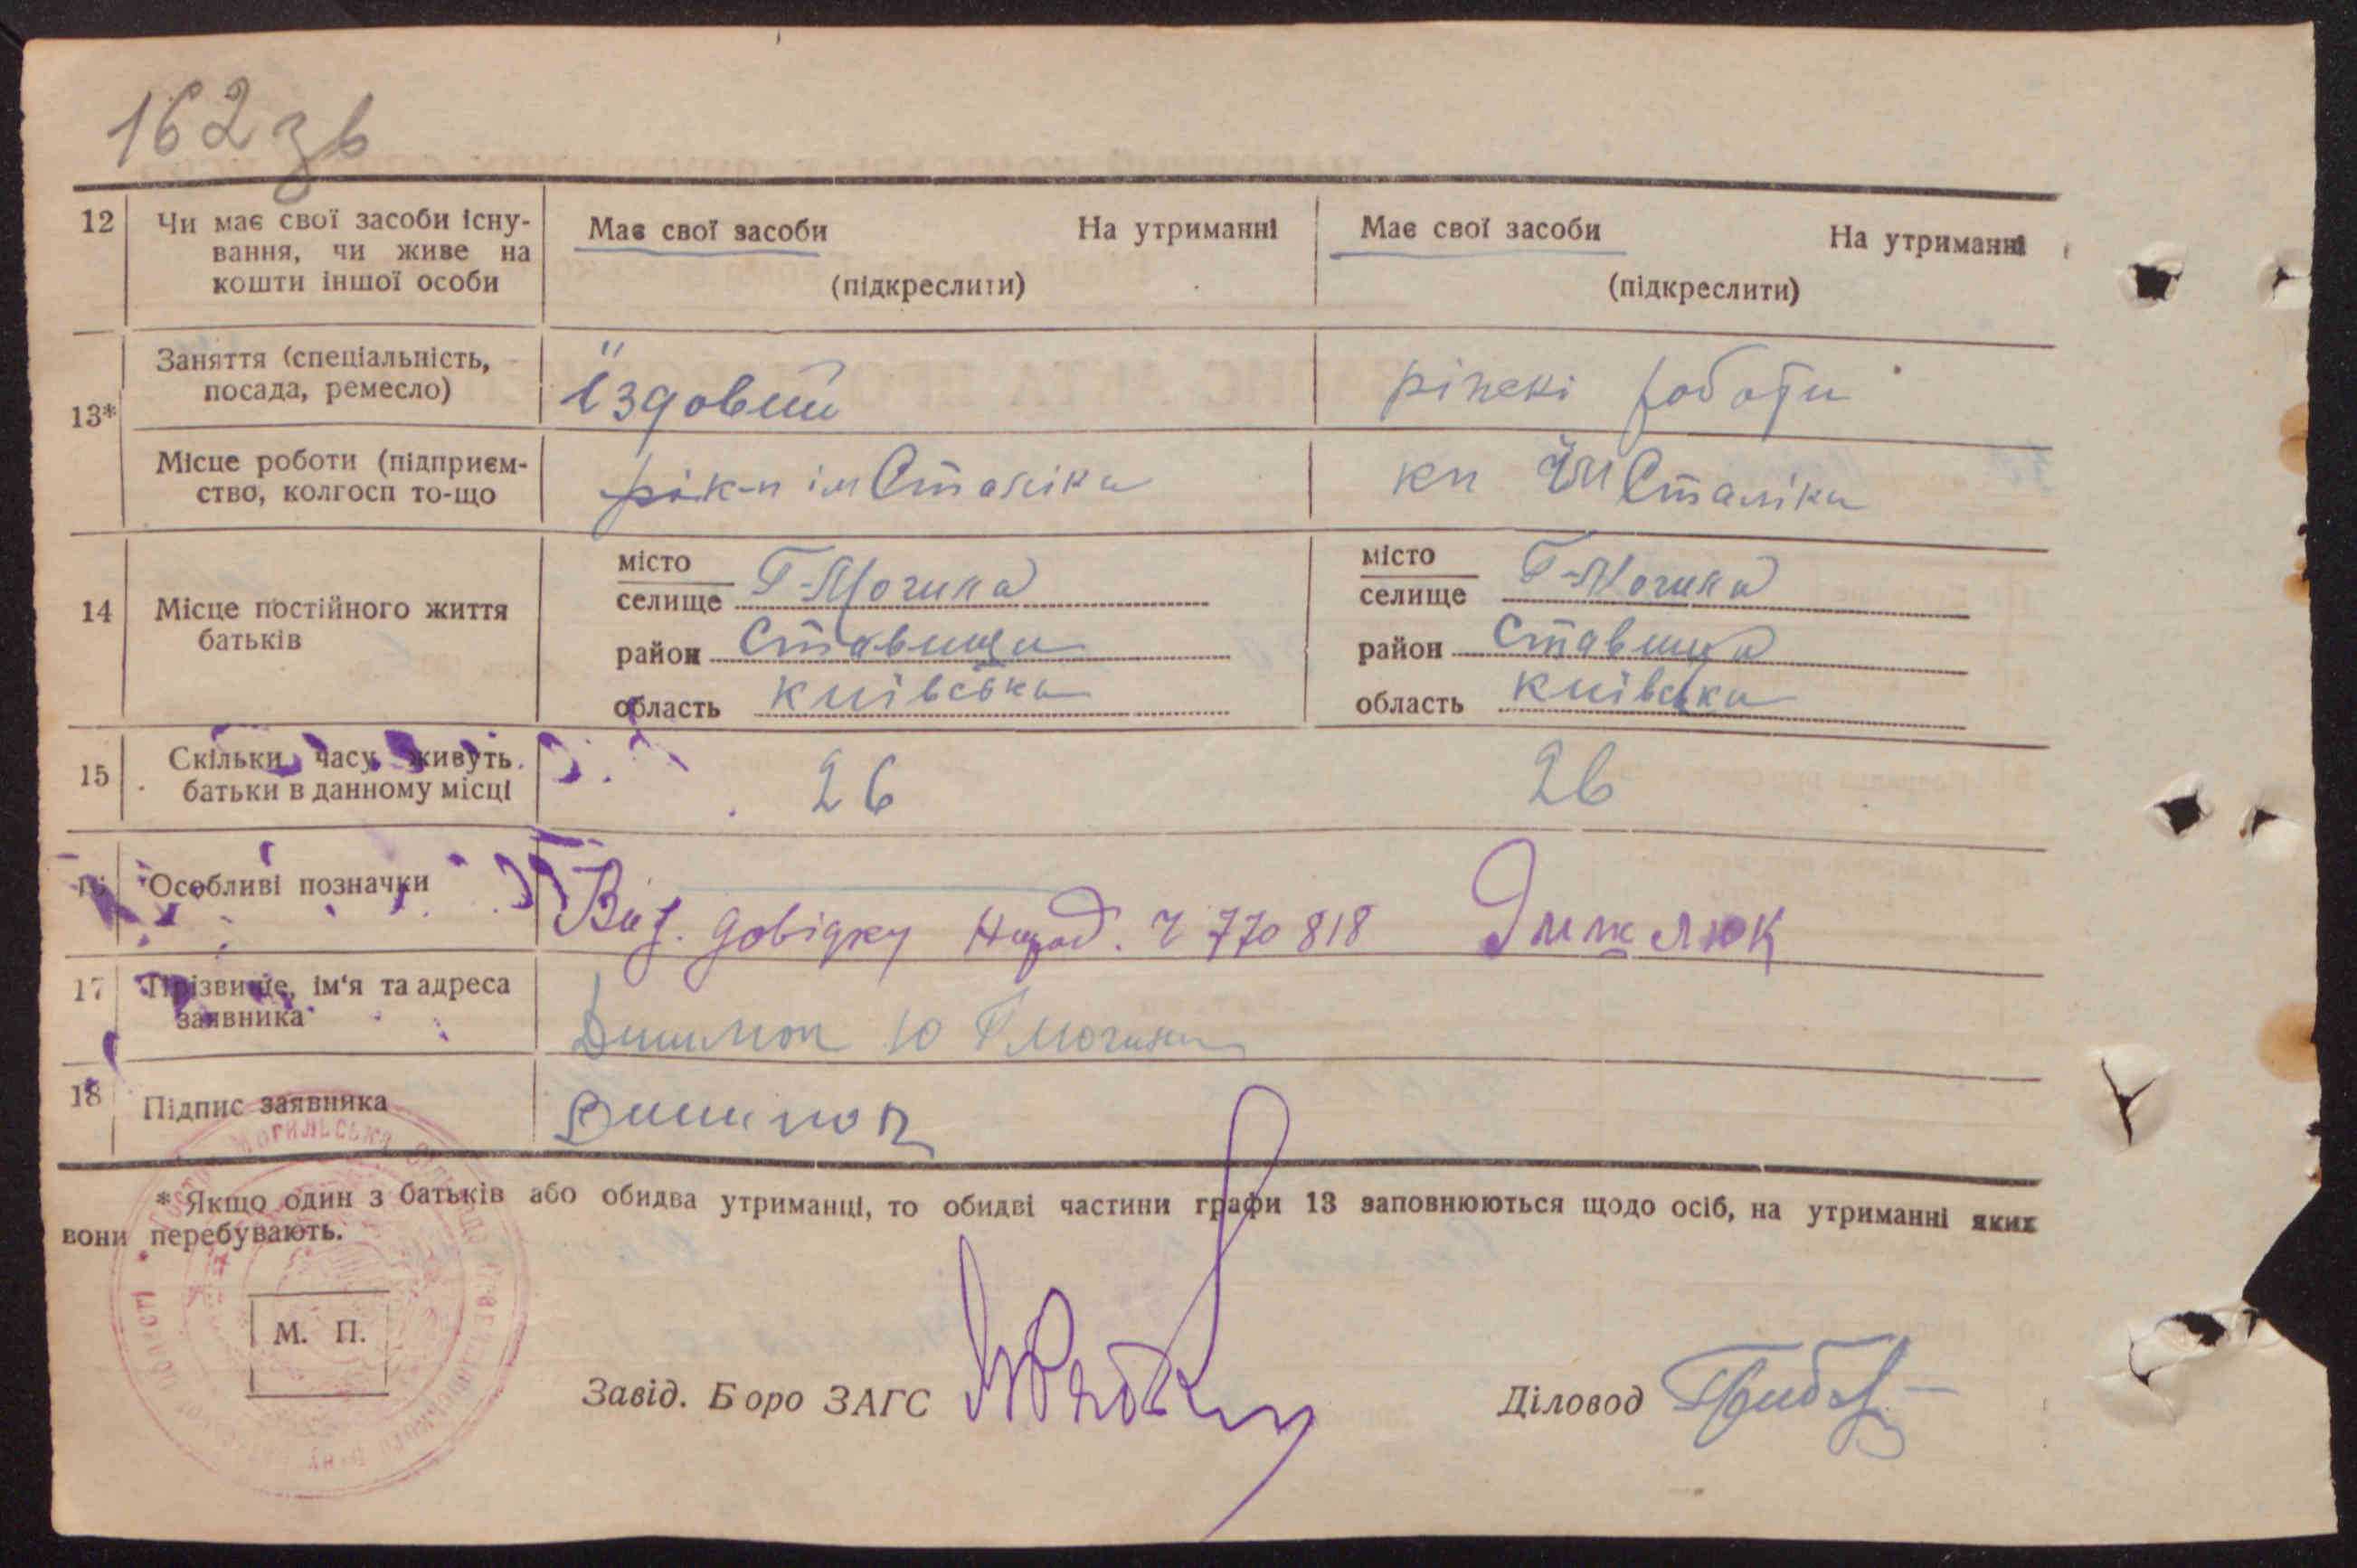 162 зв
12 Чи має свої засоби існу-
вання, чи живе на
кошти іншої особи
Має свої засоби На утриманні
(підкреслити)
Має свої засоби На утриманні
(підкреслити)
13*
Заняття (спеціальність,
посада, ремесло)
їздовий
різні роботи
Місце роботи (підприєм-
ство, колгосп то-що
к-п ім Сталіна
кп Ім Сталіна
14 Місце постійного життя
батьків
місто
селище Г-Могила
район Ставища
область Київська
місто
селище Г-Могила
район Ставища
область Київська
15 Скільки часу живуть
батьки в данному місці
26
26
16 Особливі позначки
Вид. довідку Народ. ч 770818
17 Прізвище, ім'я та адреса
заявника
Ю Г Могила
18 Підпис заявника
* Якщо один з батьків або обидва утриманці, то обидві частини графи 13 заповнюються щодо осіб, на утриманні яких
вони перебувають.
М. П.
Завід. Бюро ЗАГС
Діловод